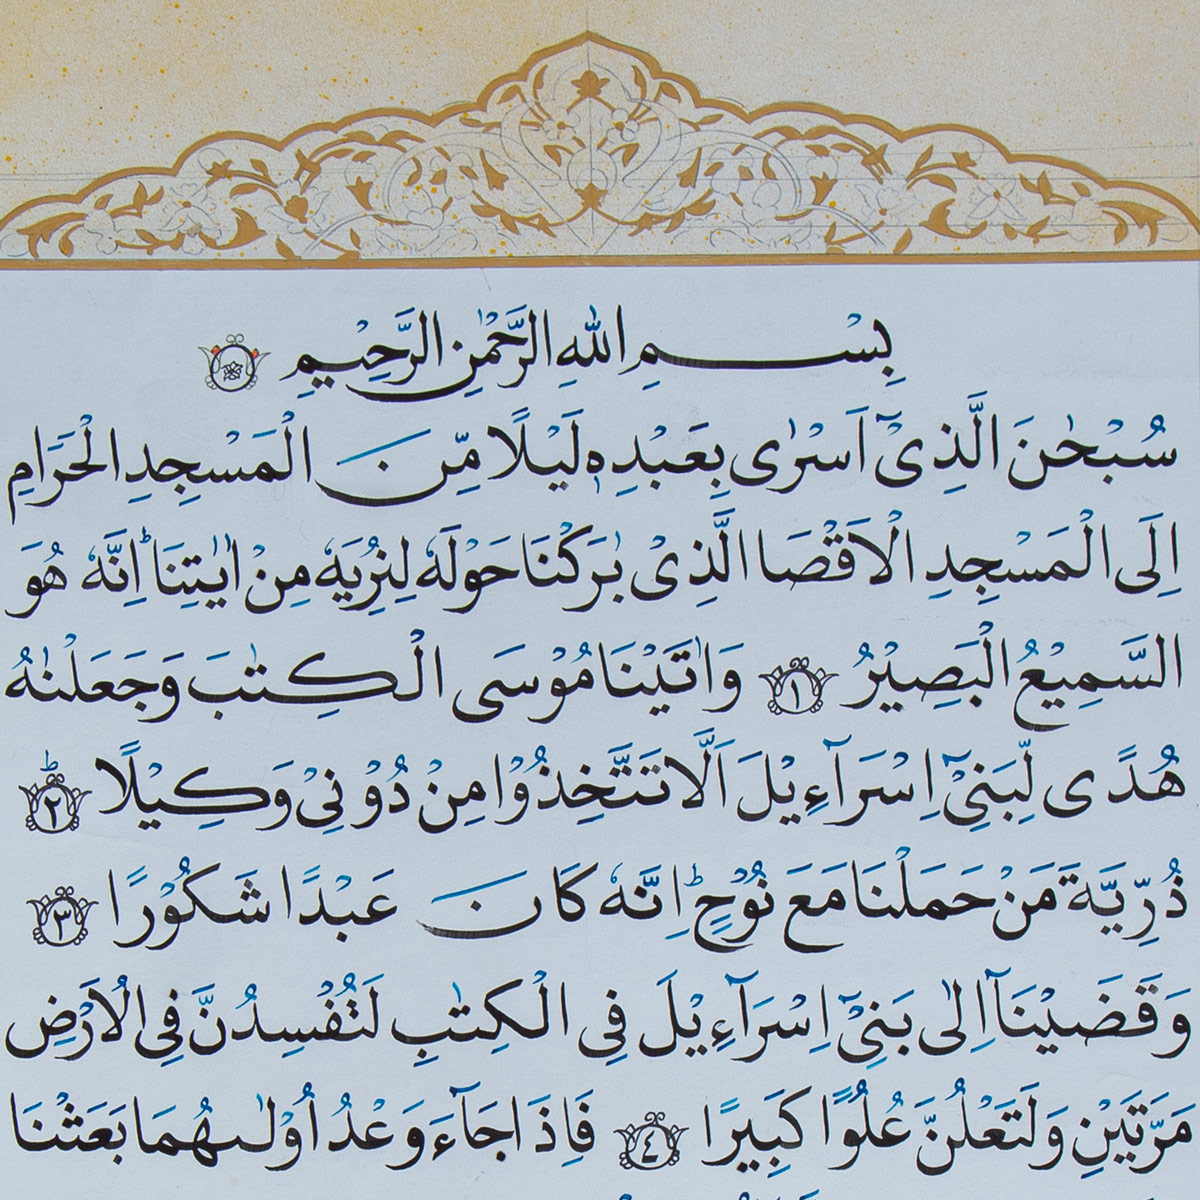 بِسْمِ اللّٰهِ الرَّحْمٰنِ الرَّحِيْمِ
سُبْحٰنَ الَّذِىْٓ اَسْرٰى بِعَبْدِهٖ لَيْلًا مِّنَ الْمَسْجِدِ الْحَرَامِ
اِلَى الْمَسْجِدِ الْاَقْصَا الَّذِىْ بٰرَكْنَا حَوْلَهٗ لِنُرِيَهٗ مِنْ اٰيٰتِنَا ؕ اِنَّهٗ هُوَ
السَّمِيْعُ الْبَصِيْرُ ١ وَاٰتَيْنَا مُوْسَى الْكِتٰبَ وَجَعَلْنٰهُ
هُدًى لِّبَنِىْٓ اِسْرَآءِيْلَ اَلَّا تَتَّخِذُوْا مِنْ دُوْنِىْ وَكِيْلًا ؕ ٢
ذُرِّيَّةَ مَنْ حَمَلْنَا مَعَ نُوْحٍ ؕ اِنَّهٗ كَانَ عَبْدًا شَكُوْرًا ٣
وَقَضَيْنَآ اِلٰى بَنِىْٓ اِسْرَآءِيْلَ فِى الْكِتٰبِ لَتُفْسِدُنَّ فِى الْاَرْضِ
مَرَّتَيْنِ وَلَتَعْلُنَّ عُلُوًّا كَبِيْرًا ٤ فَاِذَا جَآءَ وَعْدُ اُوْلٰىهُمَا بَعَثْنَا